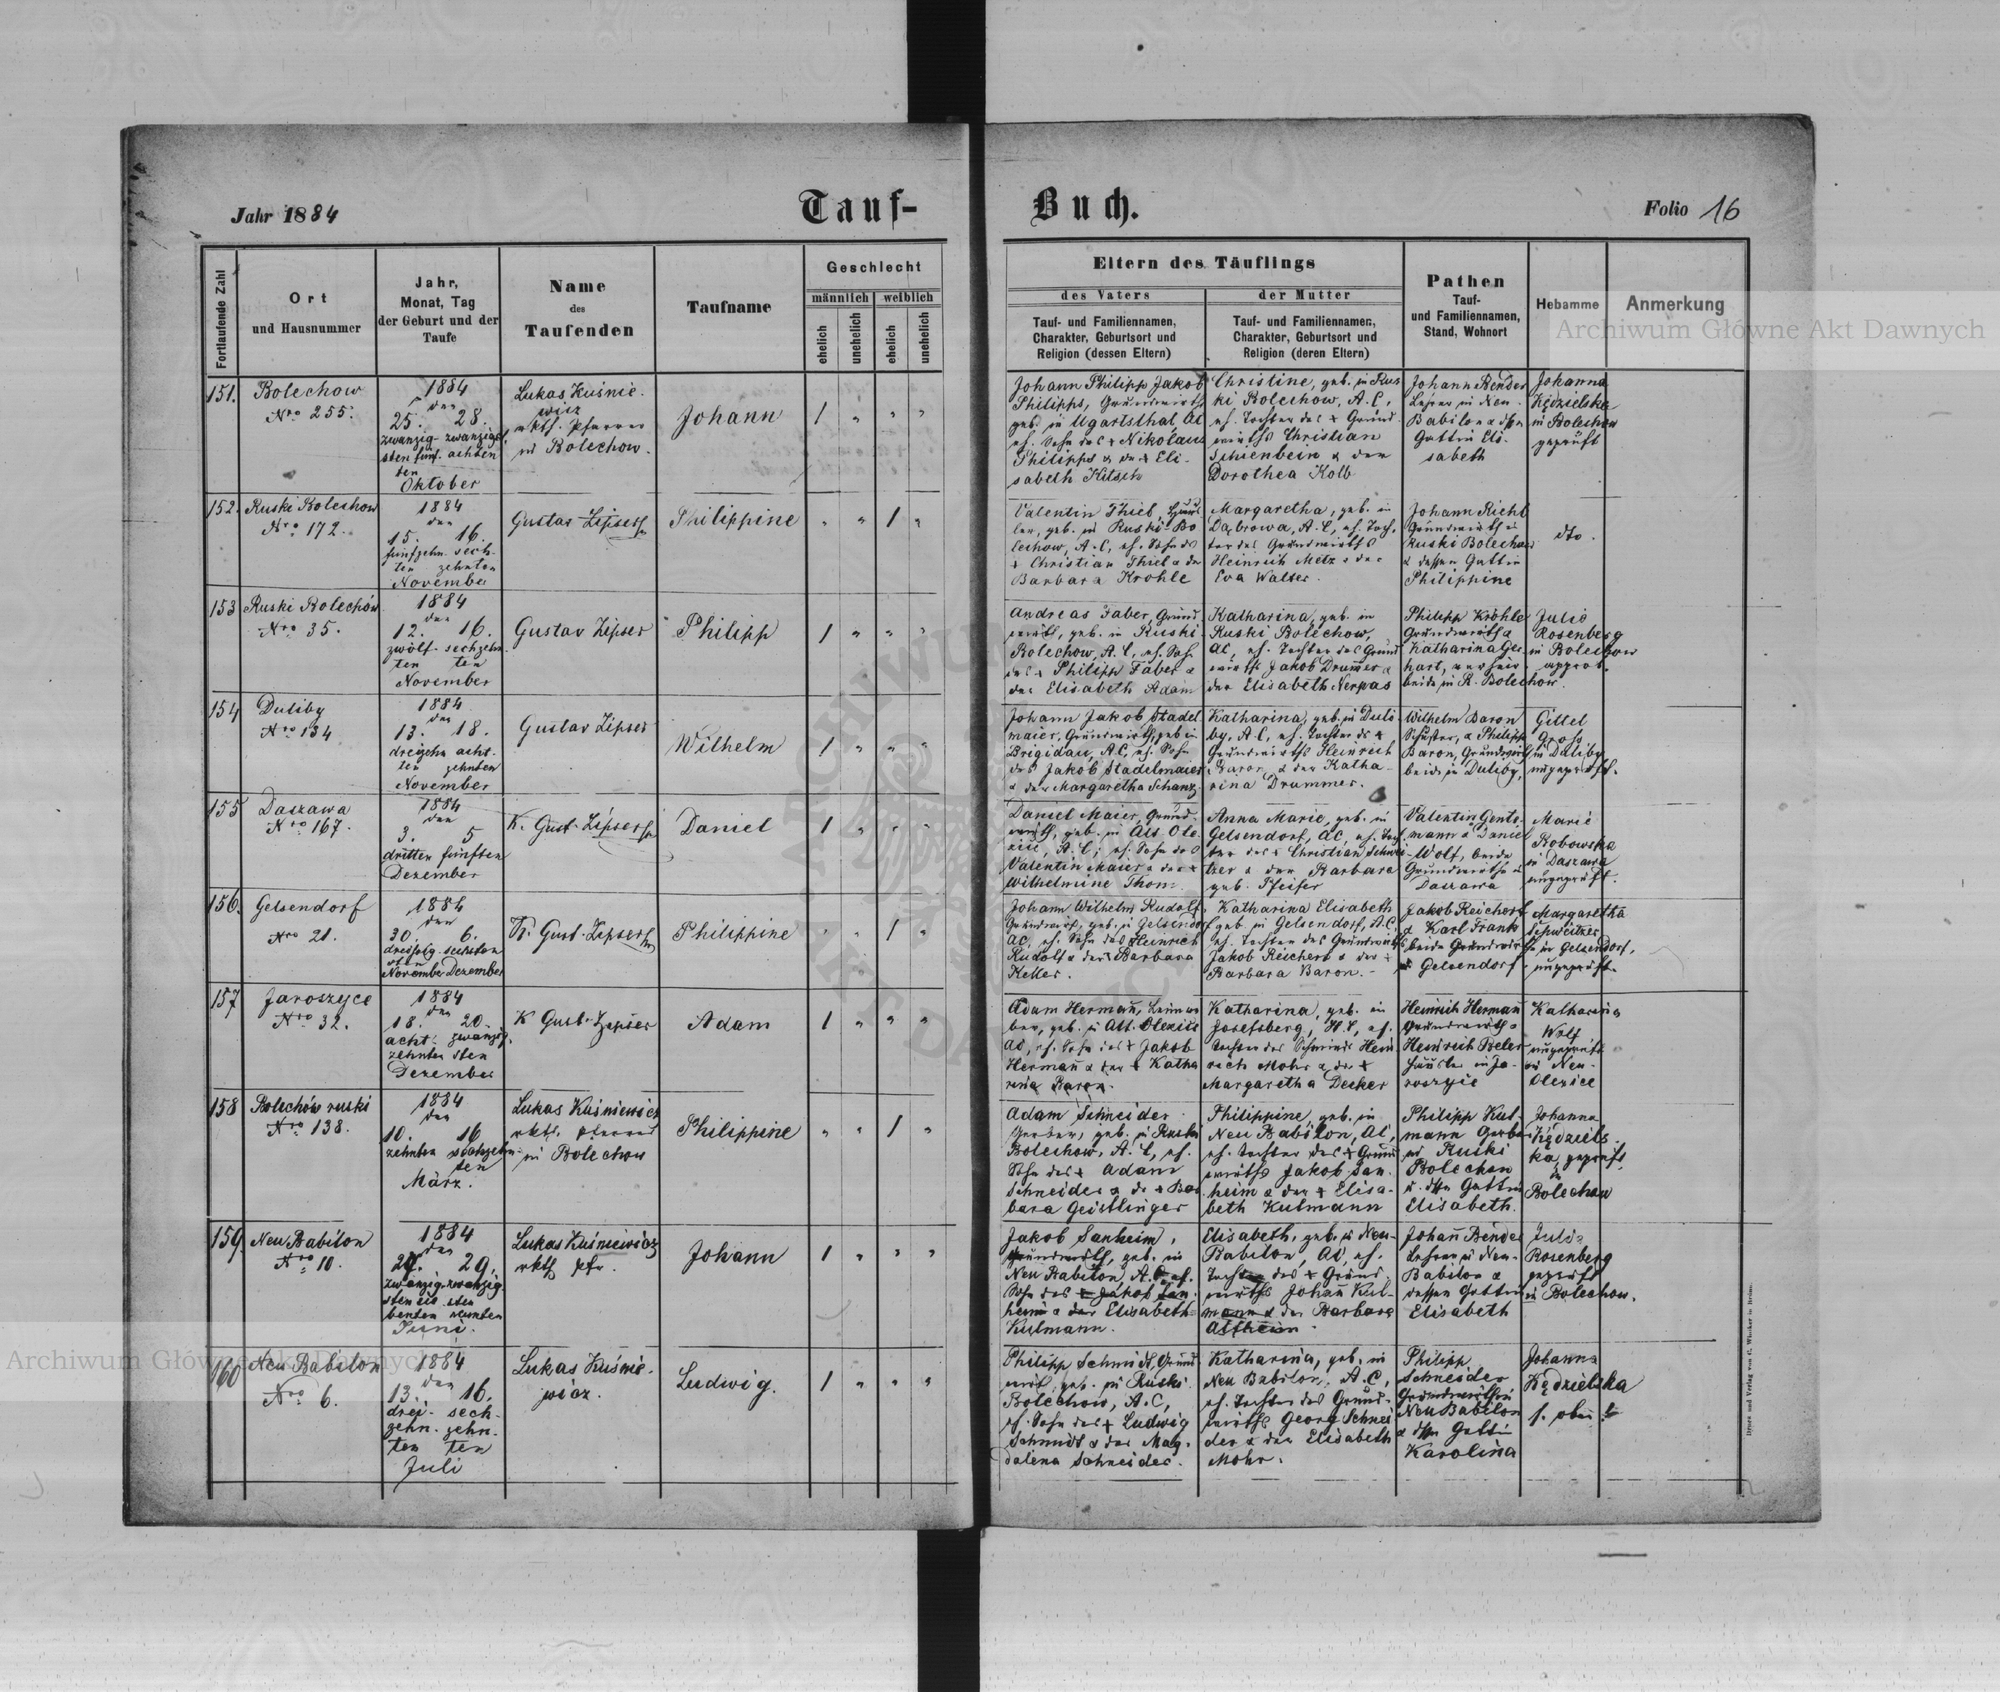 Jahr 1884
Tauf-
Buch.
Folio 16
Fortlaufende Zahl
Ort
und Hausnummer
Jahr,
Monat, Tag
der Geburt und der
Taufe
Name
des
Taufenden
Taufname
Geschlecht
männlich
weiblich
ehelich
unehelich
ehelich
unehelich
Eltern des Täuflings
des Vaters
der Mutter
Tauf- und Familiennamen,
Charakter, Geburtsort und
Religion (dessen Eltern)
Tauf- und Familiennamen,
Charakter, Geburtsort und
Religion (deren Eltern)
Pathen
Tauf-
und Familiennamen,
Stand, Wohnort
Hebamme
Anmerkung
Archiwum Główne Akt Dawnych
151.
Bolechow
Nro 255.
1884
den
25. 28.
zwanzig- zwanzig
sten fünf- achten
ten
Oktober
Lukas Kuśnie-
wicz
rkth. Pfarrer
in Bolechow.
Johann
1 " " "
Johann Philipp Jakob
Philipps, Grundwirth
geb. in Ugartsthal, AC
eh. Sohn des + Nikolaus
Philipps & der + Eli-
sabeth Kitsch
Christine, geb. in Rus
ki Bolechow, A.C,
eh. Tochter des + Grund
wirths Christian
Schienbein & der
Dorothea Kolb
Johann Bender
Lehrer in Neu-
Babilon & dssn
Gattin Eli-
sabeth
Johanna
Kędzielska
in Bolechow
geprüft
152.
Ruski Bolechow
Nro 172.
1884
den
15. 16.
fünfzehn- sech-
ten zehnten
November
Gustav Zipser
Philippine
" " 1 "
Valentin Thiel, Häus
ler, geb. in Ruski-Bo
lechow, A.C, eh. Sohn ds
+ Christian Thiel & der
Barbara Krohle
Margaretha, geb. in
Dąbrowa, A.C, eh. Toch-
ter des Grundwirths
Heinrich Metz & der
Eva Walter.
Johann Riehl
Grundwirth in
Ruski Bolechow
& dessen Gattin
Philippine
dto.
153
Ruski Bolechów
Nro 35.
1884
den
12. 16.
zwölf- sechzehn
ten ten
November
Gustav Zipser
Philipp
1 " " "
Andreas Faber, Grund
wirth, geb. in Ruski-
Bolechow, A.C, eh. Sohn
des + Philipp Faber &
der Elisabeth Adam
Katharina, geb. in
Ruski Bolechow,
AC, eh. Tochter des Grund
wirths Jakob Drumer &
der Elisabeth Nerpas
Philipp Kröhle
Grundwirth &
Katharina Ger
hart,
beide in R. Bolechow.
Julie
Rosenberg
in Bolechow
approb.
154
Duliby
Nro 134
1884
den
13. 18.
dreizehn acht-
ten zehnten
November
Gustav Zipser
Wilhelm
1 " " "
Johann Jakob Stadel
maier, Grundwirth, geb in
Brigidau, AC, eh. Sohn
des Jakob Stadelmaier
& der Margaretha Schanz
Katharina, geb. in Duli
by, A.C, eh. Tochter ds +
Grundwirths Heinrich
Baron & der Katha-
rina Drummer.
Wilhelm Baron
Schuster, & Philipp
Baron, Grundwirth
beide in Duliby,
Gittel
Gross
in Duliby
ungeprüft.
155
Daszawa
Nro 167.
1884
den
3. 5
dritten fünften
Dezember
K. Gust. Zipser
Daniel
1 " " "
Daniel Maier, Grund-
wirth, geb. in Alt Ole-
xice, A.C; eh. Sohn des
Valentin Maier & der +
Wilhelmine Thom.
Anna Marie, geb. in
Gelsendorf, AC, eh. Toch
ter des + Christian Schwei-
tzer & der Barbara
geb. Pfeifer
Valentin
mann & Daniel
Wolf, beide
Grundwirthe in
Daszawa
Marie
Bobowska
in Daszawa
ungeprüft.
156.
Gelsendorf
Nro 21.
1884
den
30. 6.
dreissig sechsten
sten
November Dezember
K. Gust. Zipser
Philippine
" " 1 "
Johann Wilhelm Rudolf
Grundwirth, geb. in Gelsendorf
AC, eh. Sohn des Heinrich
Rudolf & der Barbara
Keller.
Katharina Elisabeth
geb. in Gelsendorf, A.C.
eh. Tochter des Grundwirths
Jakob Reichert & der +
Barbara Baron.
Jakob Reichert
& Karl Frank
beide Grundwirthe
in Gelsendorf
Margaretha
Schweitzer
in Gelsendorf,
ungeprüft.
157
Jaroszyce
Nro 32.
1884
den
18. 20.
acht- zwanzig-
zehnten sten
Dezember
K Gust. Zipser
Adam
1 " " "
Adam Hermann, Leinwe
ber, geb. in Alt. Olexice
AC, eh. Sohn des + Jakob
Hermann & der + Katha
rina Baron.
Katharina, geb. in
Josefsberg, H.C, eh.
Tochter des Schmieds Hein
rich Mohr & der +
Margaretha Decker
Heinrich Hermann
Grundwirth &
Heinrich
Häusler in Ja-
roszyce
Katharina
Wolf
ungeprüft
in Neu-
Olexice
158
Bolechów ruski
Nro 138.
1884
den
10. 16
zehnten sechzehn-
ten
März.
Lukas Kuśniewicz
rkth. Pfarrer
in Bolechow
Philippine
" " 1 "
Adam Schneider
Gerber, geb. in Ruski
Bolechow, A.C, eh.
Sohn des + Adam
Schneider & der + Bar
bara Geistlinger
Philippine, geb. in
Neu Babilon, AC,
eh. Tochter des + Grund
wirths Jakob San-
heim & der + Elisa-
beth Kulmann
Philipp Kul-
mann Gerber
in Ruski
Bolechow
u. dssn Gattin
Elisabeth.
Johanna
Kędziels-
ka, geprüft,
in
Bolechow
159.
Neu Babilon
Nro 10.
1884
den
27. 29.
zwanzig- zwanzig
sten sie sten
benten neunten
Juni.
Lukas Kuśniewicz
rkth Pfr.
Johann
1 " " "
Jakob Sanheim,
Grundwirth, geb. in
Neu Babilon, A.C, eh.
Sohn des + Jakob San-
heim & der Elisabeth
Kulmann.
Elisabeth, geb. in Neu-
Babilon, AC, eh.
Tochter des + Grund-
wirths Johann Kul-
mann & der Barbara
Altheim.
Johann Bender
Lehrer in Neu-
Babilon &
dessen Gattin
Elisabeth
Julie
Rosenberg
geprüft
in Bolechow.
160
Neu Babilon
Nro 6.
1884
den
13. 16.
drei- sech-
zehn- zehn-
ten ten
Juli
Lukas Kuśnie-
wicz.
Ludwig.
1 " " "
Philipp Schmidt, Grund
wirt, geb. in Ruski
Bolechow, A.C,
eh. Sohn des + Ludwig
Schmidt & der Mag-
dalena Schneider.
Katharina, geb. in
Neu Babilon, A.C,
eh. Tochter des Grund-
wirths Georg Schnei
der & der Elisabeth
Mohr.
Philipp
Schneider
Grundwirth in
Neu Babilon
& dssn Gattin
Karolina
Johanna
Kędzielska
s. oben
Archiwum Główne Akt Dawnych